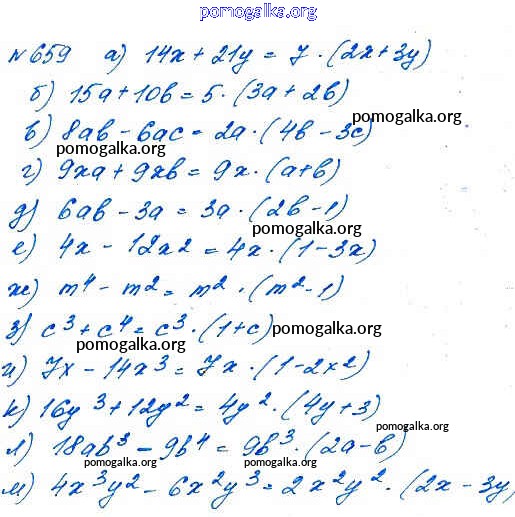 pomogalka.org
№659 а) 14x + 21y = 7 · (2x + 3y)
б) 15a + 10b = 5 · (3a + 2b)
pomogalka.org
в) 8ab - 6ac = 2a · (4b - 3c)
pomogalka.org
г) 9xa + 9xb = 9x · (a + b)
д) 6ab - 3a = 3a · (2b - 1)
pomogalka.org
е) 4x - 12x² = 4x · (1 - 3x)
ж) m⁴ - m² = m² · (m² - 1)
з) c³ + c⁴ = c³ · (1 + c) pomogalka.org
pomogalka.org
и) 7x - 14x³ = 7x · (1 - 2x²)
к) 16y³ + 12y² = 4y² · (4y + 3)
pomogalka.org
л) 18ab³ - 9b⁴ = 9b³ · (2a - b)
pomogalka.org pomogalka.org
м) 4x³y² - 6x²y³ = 2x²y² · (2x - 3y)